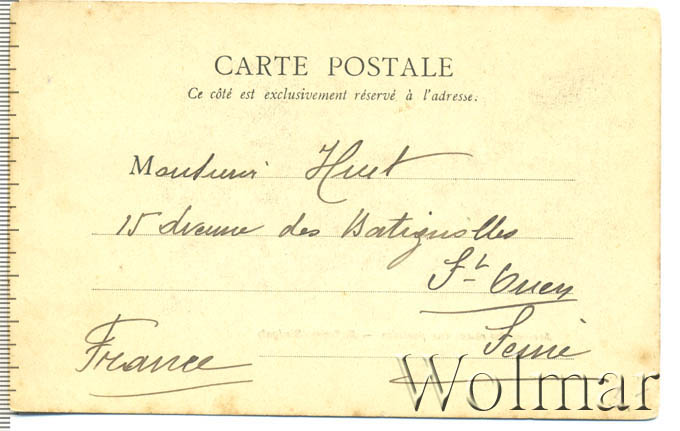 CARTE POSTALE
Ce côté est exclusivement réservé à l'adresse.
Monsieur Huet
15 Avenue des Batignolles
St Ouen
Seine
France
Wolmar